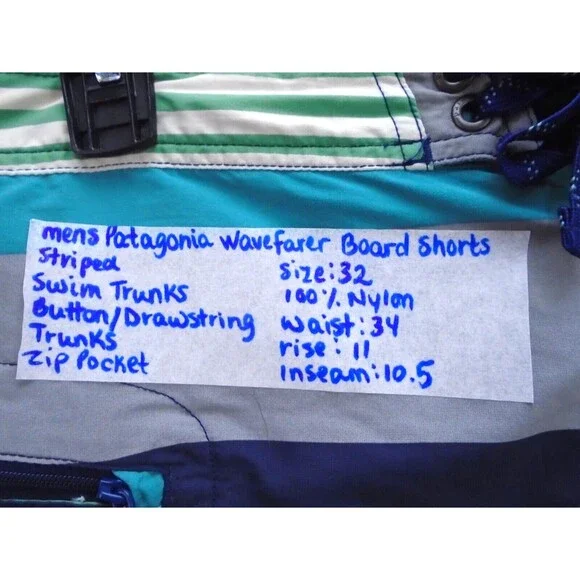 mens Patagonia Wavefarer Board Shorts
Striped
Swim Trunks
Button/Drawstring
Trunks
Zip Pocket
Size: 32
100% Nylon
Waist: 34
rise: 11
inseam: 10.5